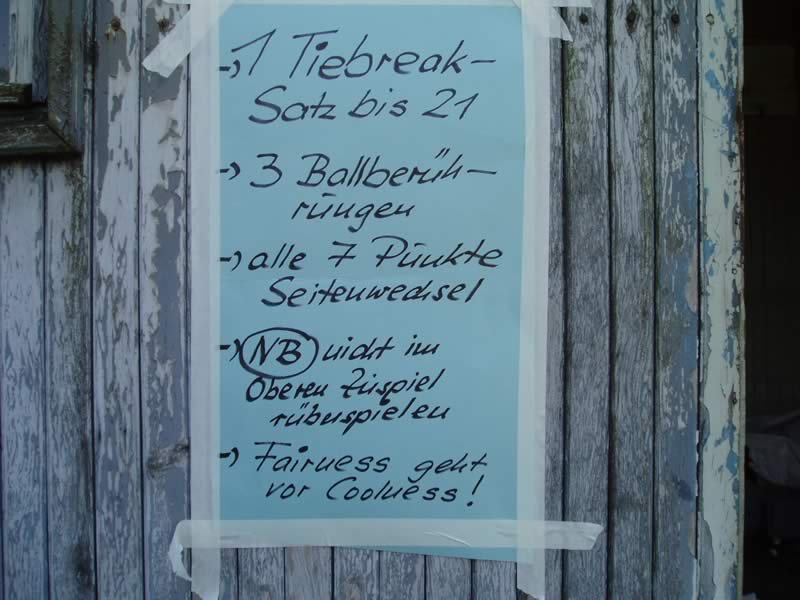 → 1 Tiebreak-
Satz bis 21
→ 3 Ballberüh-
rungen
→ alle 7 Punkte
Seitenwechsel
→ NB nicht im
Oberen Zuspiel
rüberspielen
→ Fairness geht
vor Coolness!